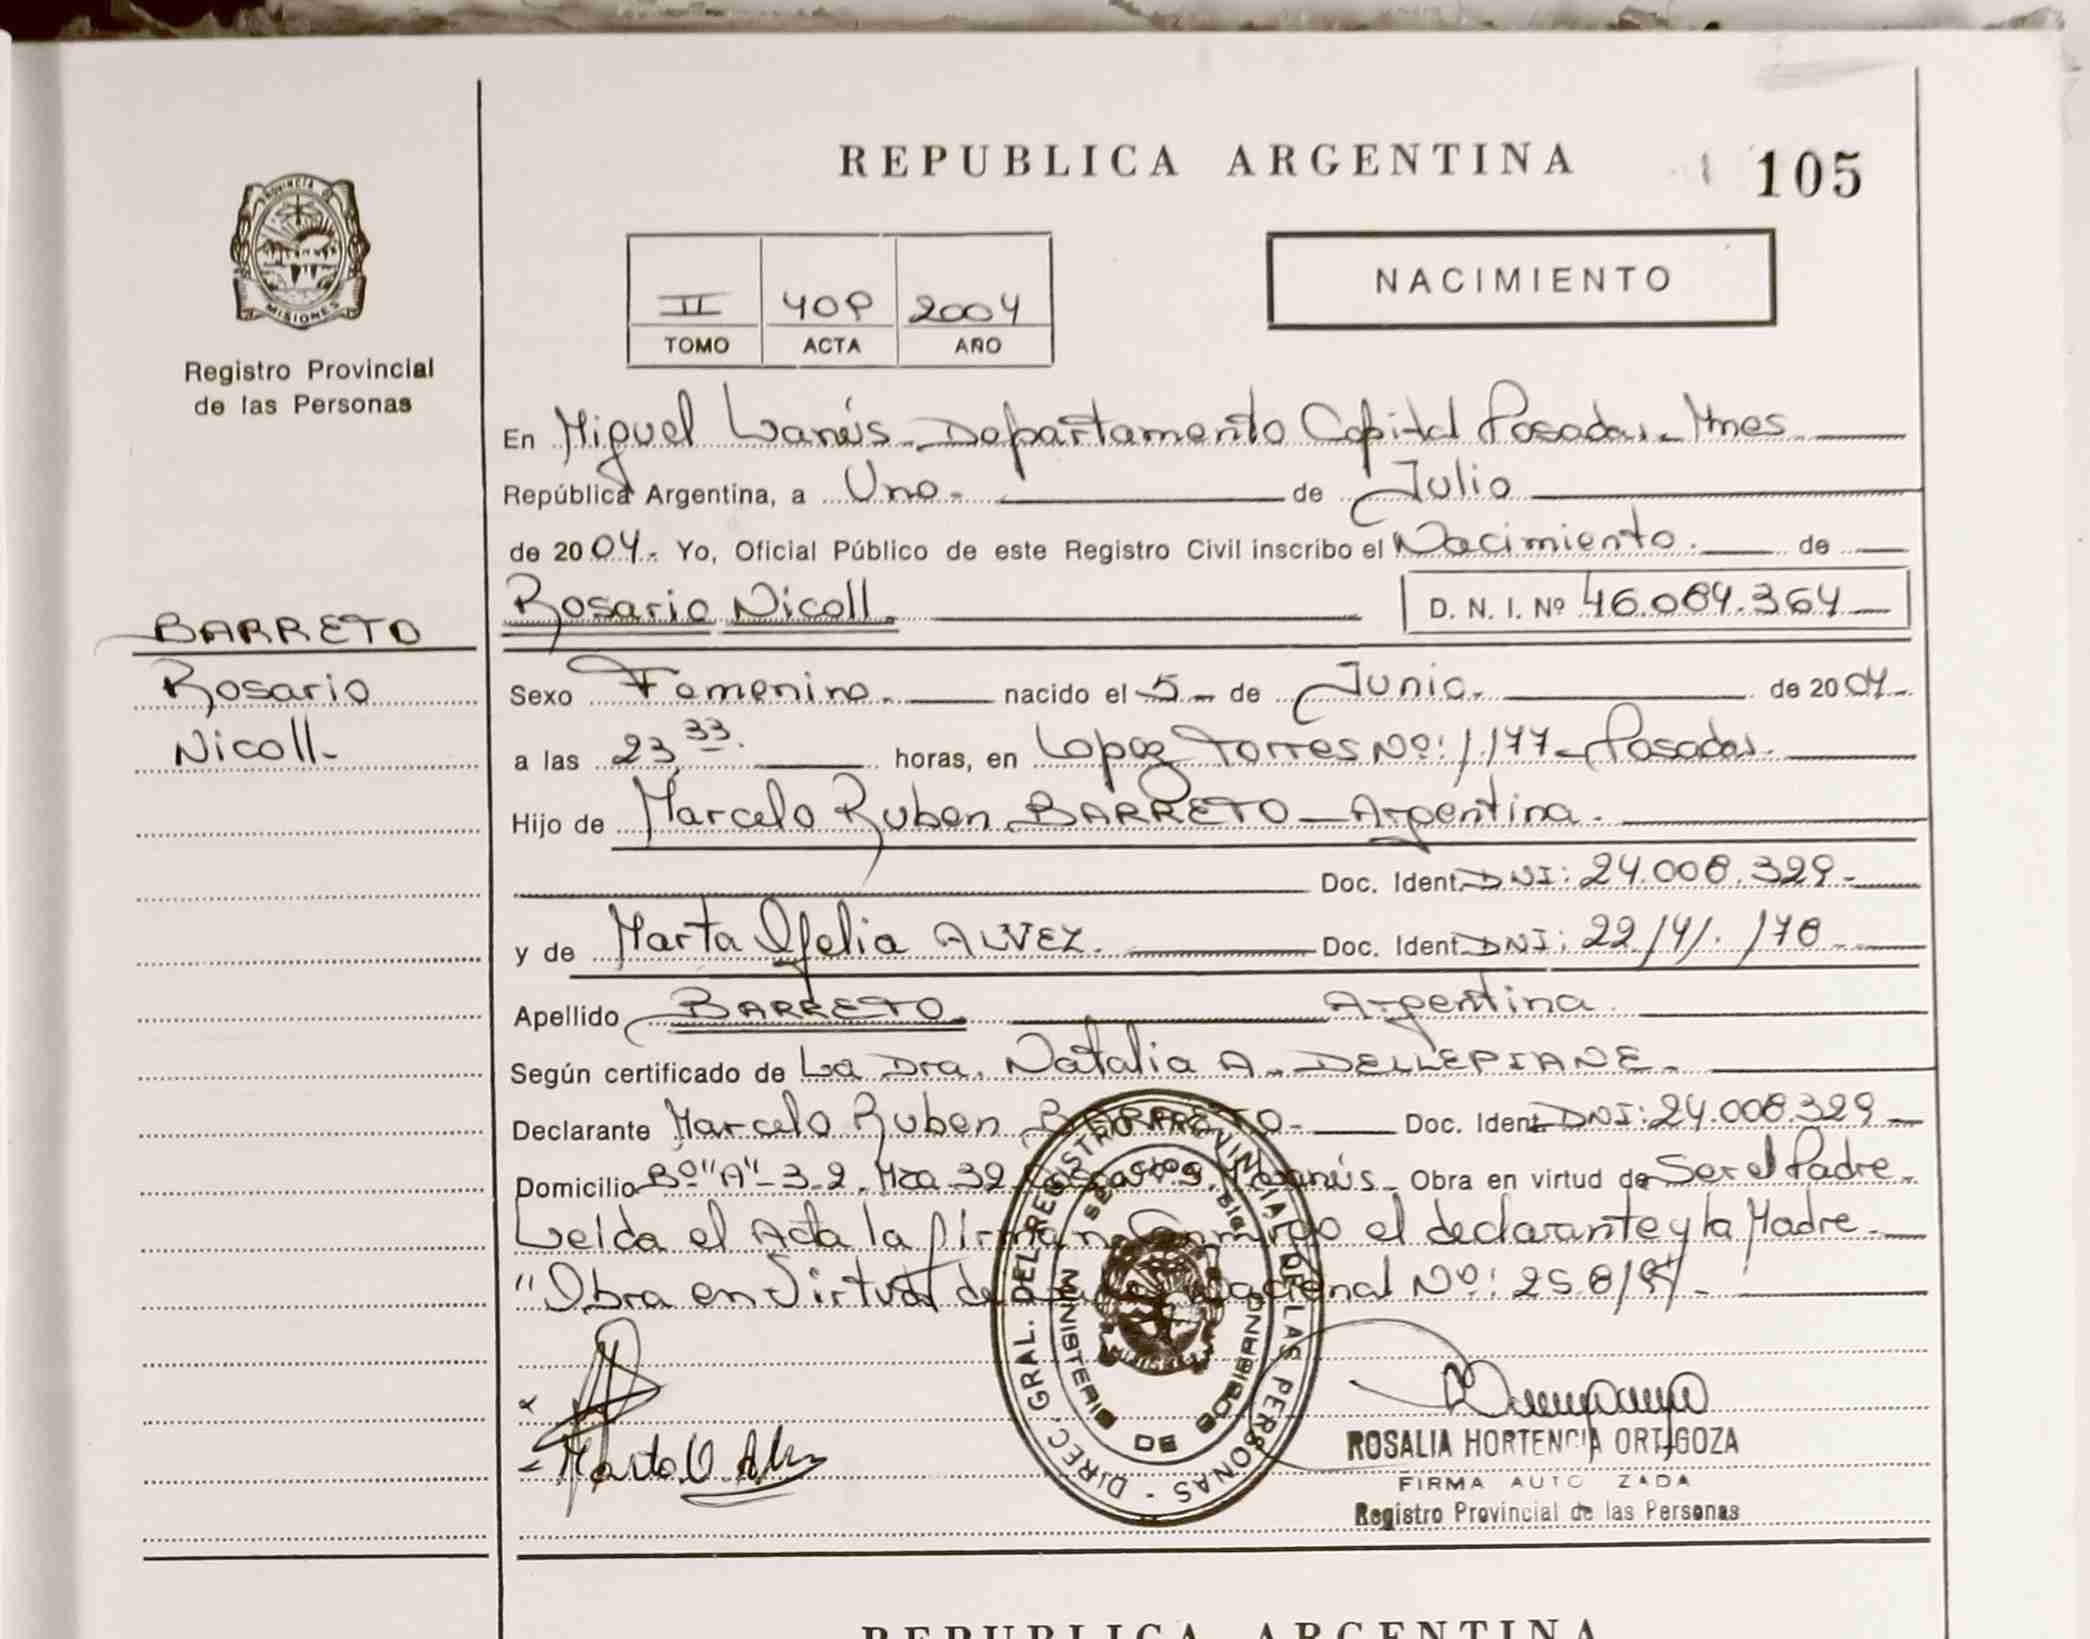 REPUBLICA ARGENTINA
105
PROVINCIA DE
MISIONES
Registro Provincial
de las Personas
II 409 2004
TOMO ACTA AÑO
NACIMIENTO
En Miguel Lanús - Departamento Capital Posadas - Mnes
República Argentina, a Uno - de Julio
de 2004 - Yo, Oficial Público de este Registro Civil inscribo el Nacimiento. de
Rosario Nicoll. D. N. I. Nº 46.084.364
BARRETO
Rosario
Nicoll -
Sexo Femenino. nacido el 5 - de Junio. de 2004 -
a las 23,33. horas, en Lopez Torres Nº: 1.177 - Posadas.
Hijo de Marcelo Ruben BARRETO - Argentina.
Doc. Ident. DNI: 24.008.329.
y de Marta Ofelia ALVEZ. Doc. Ident. DNI: 22/41. /78
Apellido BARRETO. Argentina
Según certificado de La Dra. Natalia A. DELLEPIANE.
Declarante Marcelo Ruben BARRETO - Doc. Ident. DNI: 24.008.329
Domicilio Bº "A" - 3-2. Mza 32 Lanús - Obra en virtud de Ser el Padre.
Leida el Acta la firman Conmigo el declarante y la Madre.
"Obra en Virtud de Nacional Nº:
DIREC. GRAL. DEL REGISTRO PROVINCIAL DE LAS PERSONAS
MINISTERIO DE GOBIERNO
Marta O. Alv
ROSALIA HORTENCIA ORTIGOZA
FIRMA AUTO ZADA
Registro Provincial de las Personas
REPUBLICA ARGENTINA